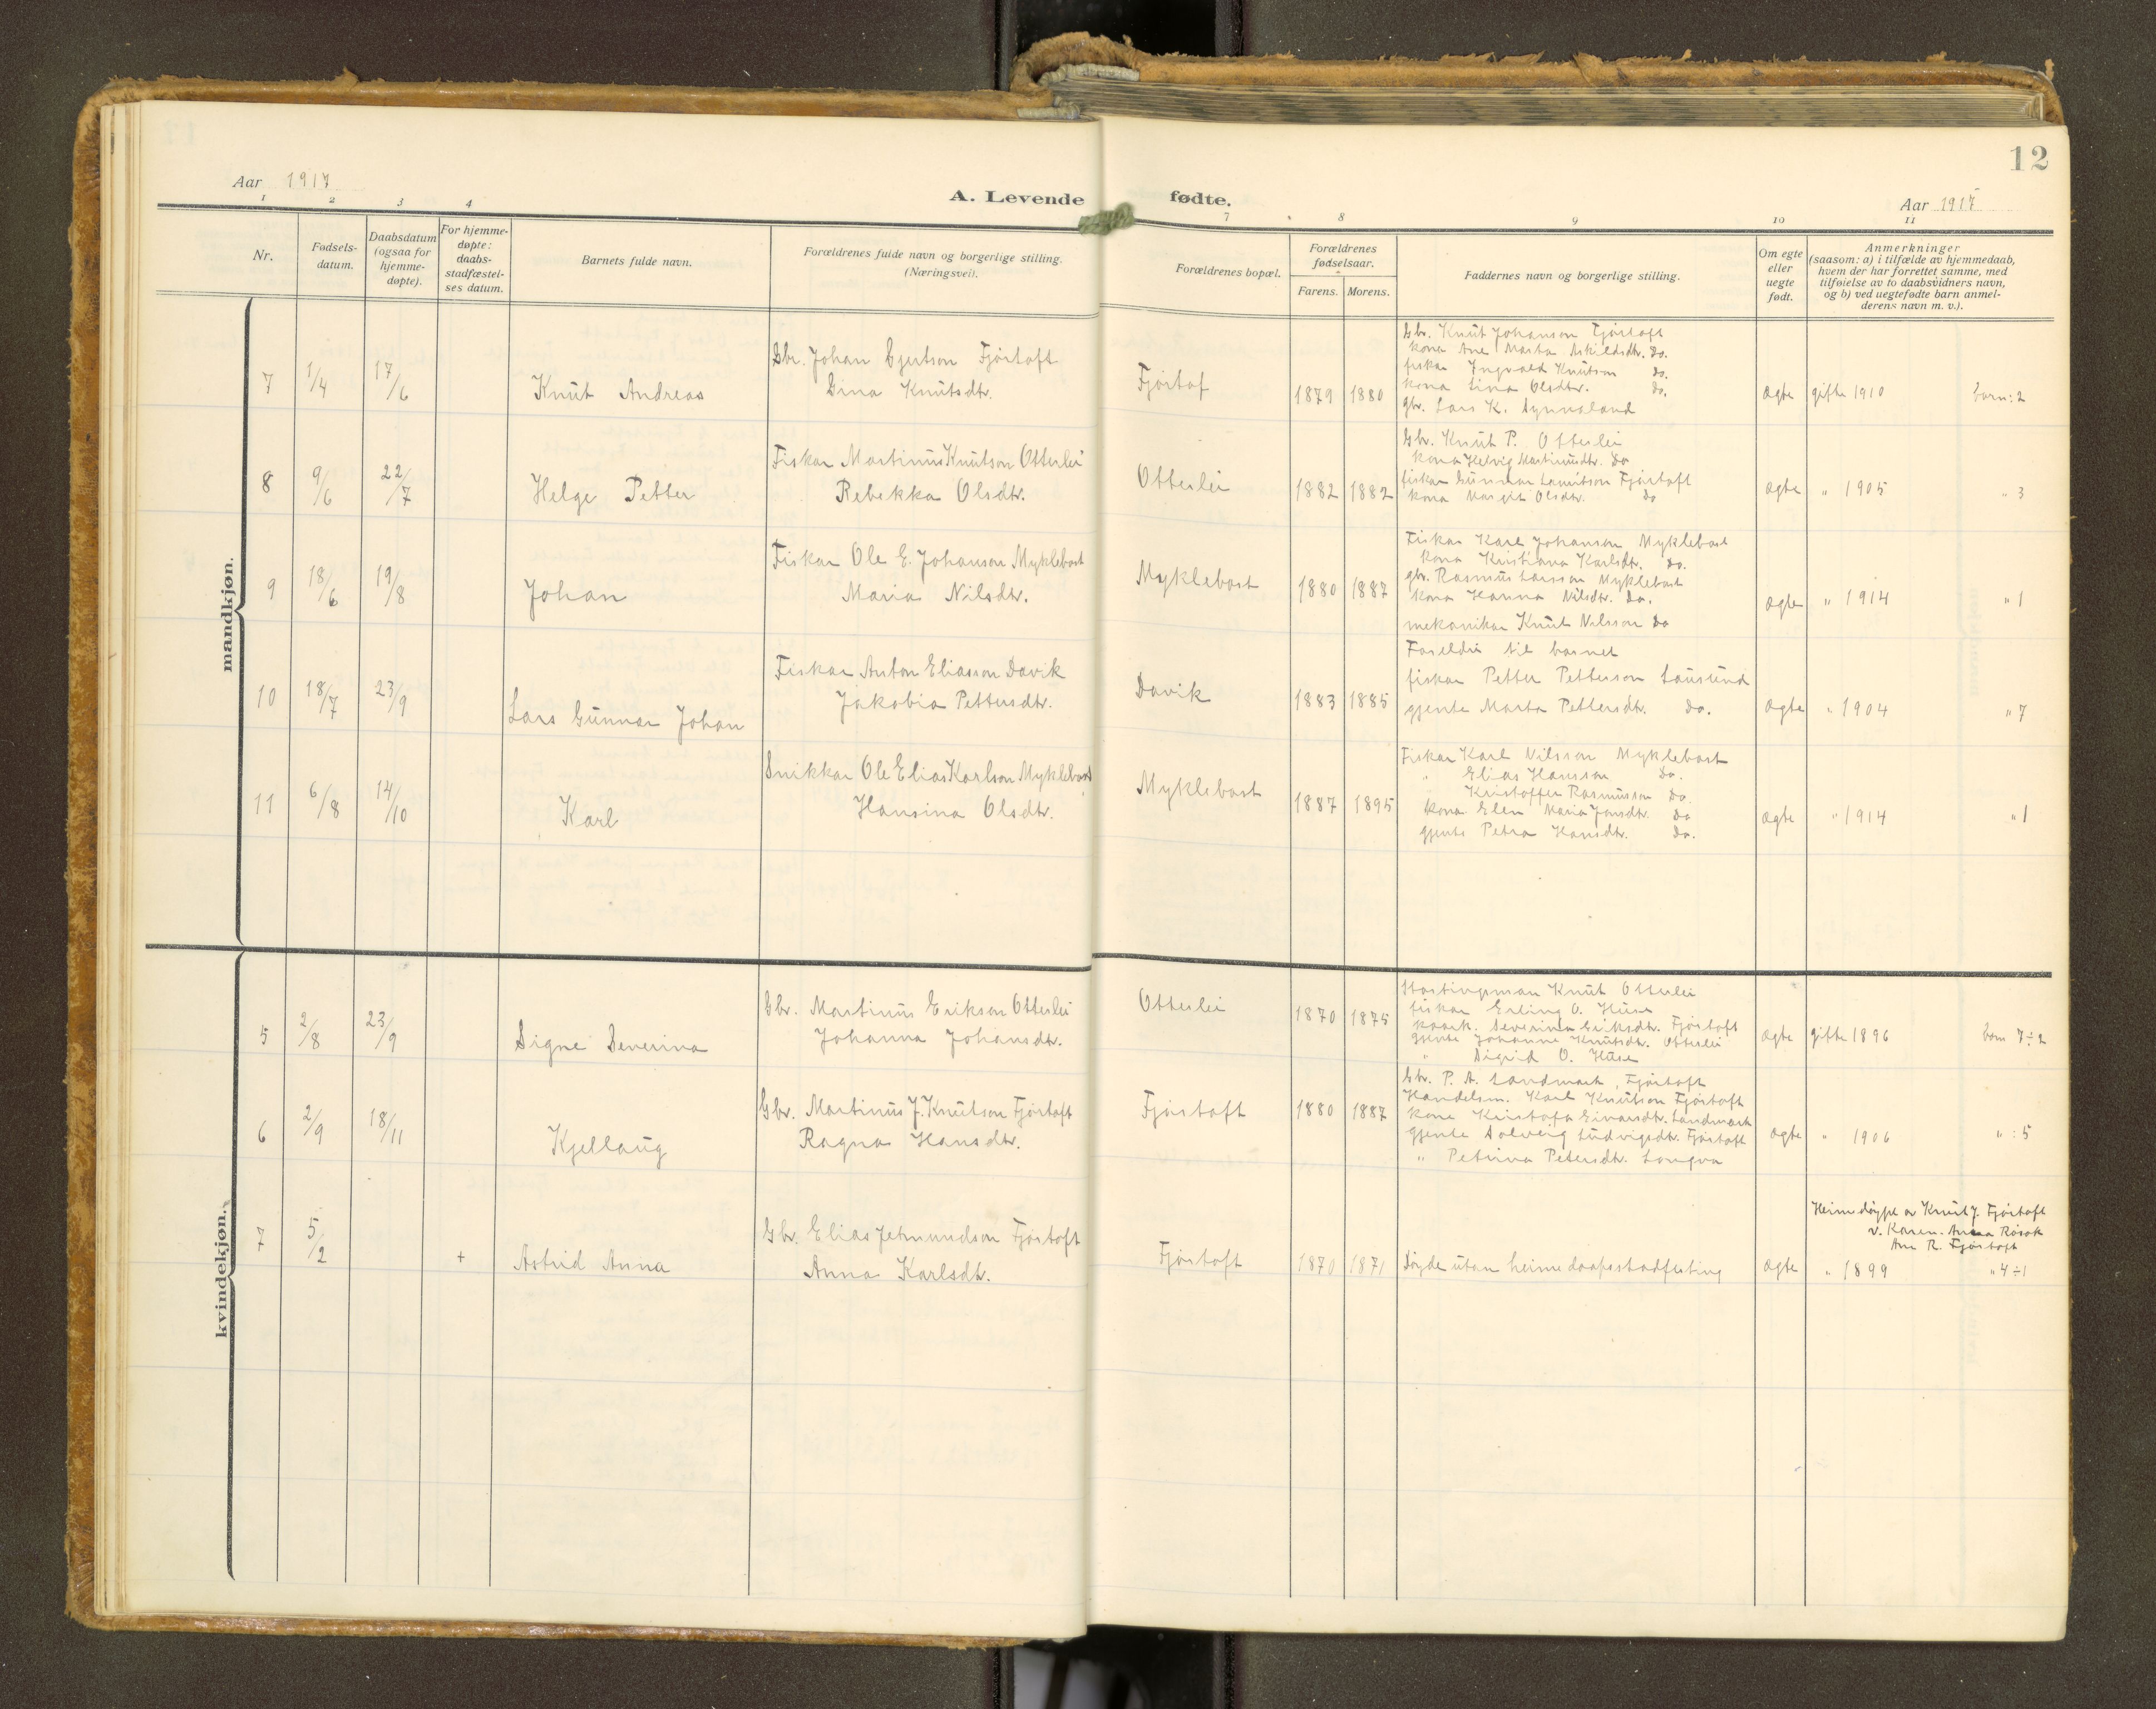 12
Aar 1917
A. Levende fødte.
Aar 1917
1 2 3 4 7 8 9 10 11
Nr.
Fødsels-
datum.
Daabsdatum
(ogsaa for
hjemme-
døpte).
For hjemme-
døpte:
daabs-
stadfæstel-
ses datum.
Barnets fulde navn.
Forældrenes fulde navn og borgerlige stilling.
(Næringsvei).
Forældrenes bopæl.
Forældrenes
fødselsaar.
Farens. Morens.
Faddernes navn og borgerlige stilling.
Om egte
eller
uegte
født.
Anmerkninger
(saasom: a) i tilfælde av hjemmedaab,
hvem der har forrettet samme, med
tilføielse av to daabsvidners navn,
og b) ved uegtefødte barn anmel-
derens navn m. v.).
mandkjøn.
7 1/4 17/6 Knut Andreas
Gbr. Johan Gjertson Fjørtoft
Gina Knutsdtr.
Fjørtof 1879 1880
Gbr. Knut Johanson Fjørtoft
kona Ane Marta Askildsdtr. do.
fiskar Ingvald Knutson do.
kona Lina Olsdtr. do.
gbr. Lars K. Synnaland
ægte gifte 1910 barn: 2
8 9/6 22/7 Helge Petter
Fiskar Martinus Knutson Otterlei
Rebekka Olsdtr.
Otterlei 1882 1882
Gbr. Knut P. Otterlei
kona Helvig Martinusdtr. do
fiskar Gunnar Fjørtoft
kona Margit Olsdtr. do
ægte " 1905 " 3
9 18/6 19/8 Johan
Fiskar Ole E. Johanson Myklebost
Maria Nilsdtr.
Myklebost 1880 1887
Fiskar Karl Johanson Myklebost
kona Kristiana Karlsdtr. do.
gbr. Rasmus Larsson Myklebost
kona Hanna Nilsdtr. do.
mekanikar Knut Nilsson do
ægte " 1914 " 1
10 18/7 23/9 Lars Gunnar Johan
Fiskar Anton Eliasson Davik
Jakobia Pettersdtr.
Davik 1883 1885
Foreldri til barnet
fiskar Petter Petterson Lausund
gjente Marta Pettersdtr. do.
ægte " 1904 " 7
11 6/8 14/10 Karl
Snikkar Ole Elias Karlson Myklebost
Hansina Olsdtr.
Myklebost 1887 1895
Fiskar Karl Nilsson Myklebost
" Elias Hansson do.
" Kristoffer Rasmusson do.
kona Elen Maria Jonsdtr. do
gjente Petra Hansdtr. do.
ægte " 1914 " 1
kvindekjøn.
5 2/8 23/9 Signe Severina
Gbr. Martinus Erikson Otterlei
Johanna Johansdtr.
Otterlei 1870 1875
Stortingsman Knut Otterlei
fiskar Erling O. Huse
Severina Eriksdtr. Fjørtoft
gjente Johanne Knutsdtr. Otterlei
" Sigrid O. Huse
ægte gifte 1896 born 7÷2
6 2/9 18/11 Kjellaug
Gbr. Martinus J. Knutson Fjørtoft
Ragna Hansdtr.
Fjørtoft 1880 1887
Gbr. P. A. Landmark, Fjørtoft
Handelsm. Karl Knutson Fjørtoft
kone Kristofa Einarsdtr. Landmark
gjente Solveig Ludvigsdtr. Fjørtoft
" Petrina Petersdtr. Longva
ægte " 1906 " : 5
7 5/2 + Astrid Anna
Gbr. Elias Jetmundson Fjørtoft
Anna Karlsdtr.
Fjørtoft 1870 1871
Døyde utan heimedaapsstadfesting
ægte
Heimdøypt av Knut J. Fjørtoft
v. Karen Anna Røsok
Ane R. Fjørtoft
" 1899 " 4÷1